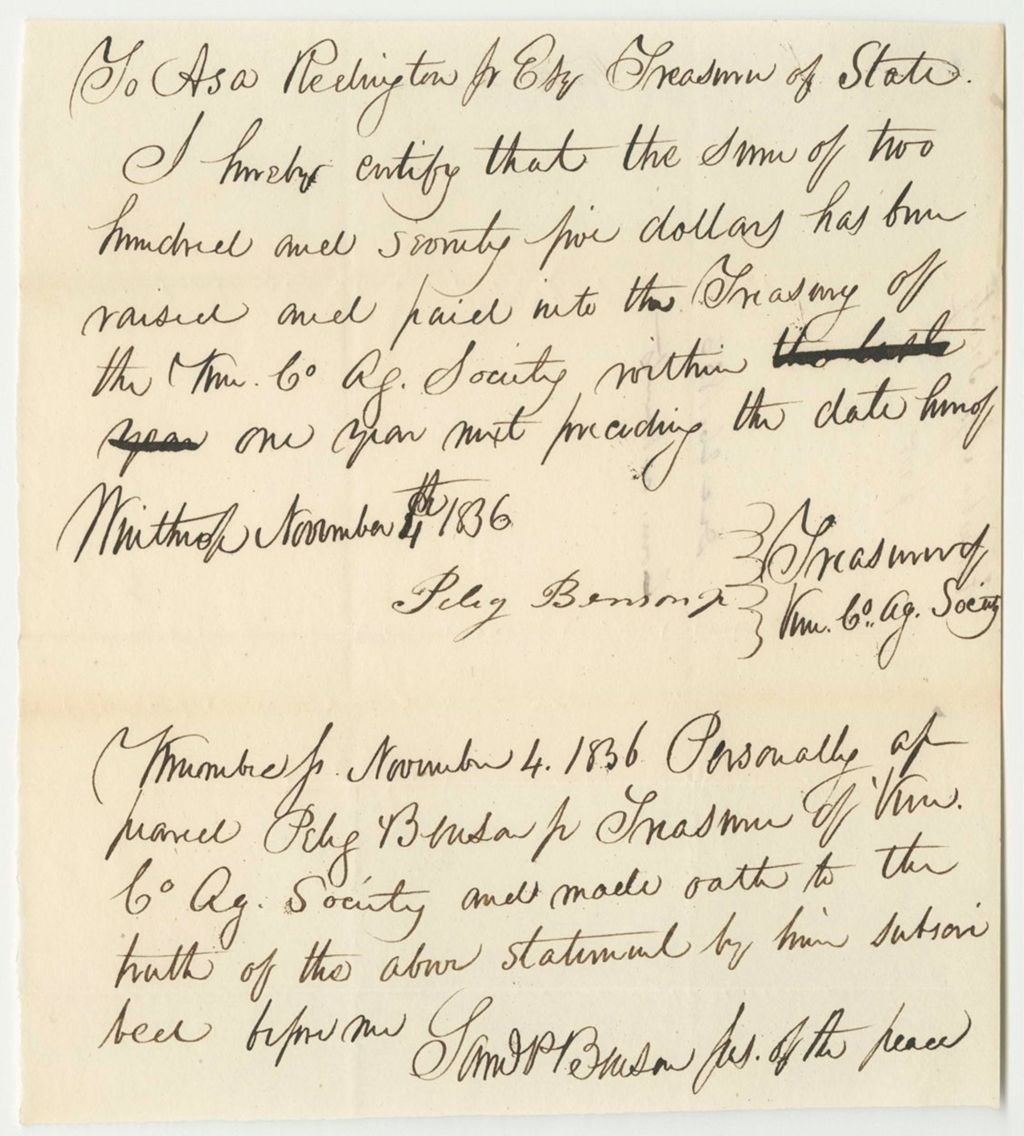 To Asa Redington Jr Esqr Treasurer of State.
I hereby certify that the sum of two
hundred and seventy five dollars has been
raised and paid into the Treasury of
the Ken. Co Ag. Society within the last
year one year next preceding the date hereof
Winthrop November 4th 1836
Peleg Benson Jr } Treasurer of
Ken. Co. Ag. Society
Kennebec ss. November 4. 1836 Personally ap
peared Peleg Benson Jr Treasurer of Ken.
Co Ag. Society and made oath to the
truth of the above statement by him subscri
bed before me Saml P Benson jus. of the peace